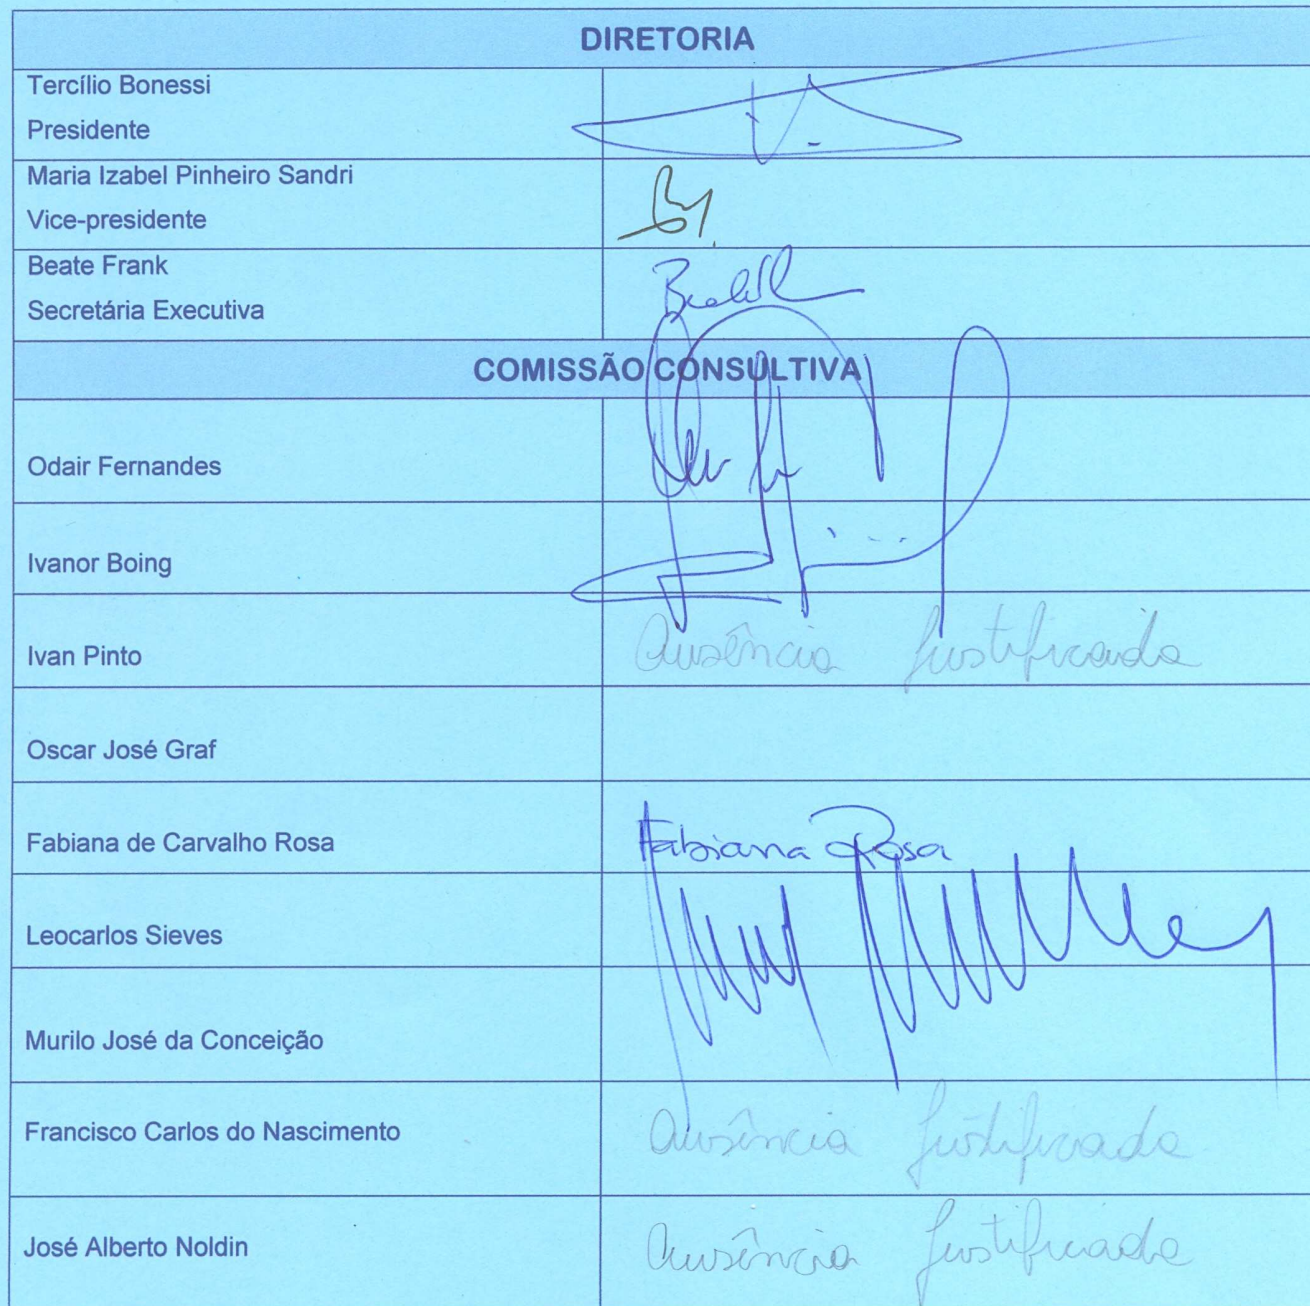 DIRETORIA
Tercílio Bonessi
Presidente
Maria Izabel Pinheiro Sandri
Vice-presidente
Beate Frank
Secretária Executiva
COMISSÃO CONSULTIVA
Odair Fernandes
Ivanor Boing
Ivan Pinto
Ausência Justificada
Oscar José Graf
Fabiana de Carvalho Rosa
Fabiana Rosa
Leocarlos Sieves
Murilo José da Conceição
Francisco Carlos do Nascimento
Ausência Justificada
José Alberto Noldin
Ausência Justificada